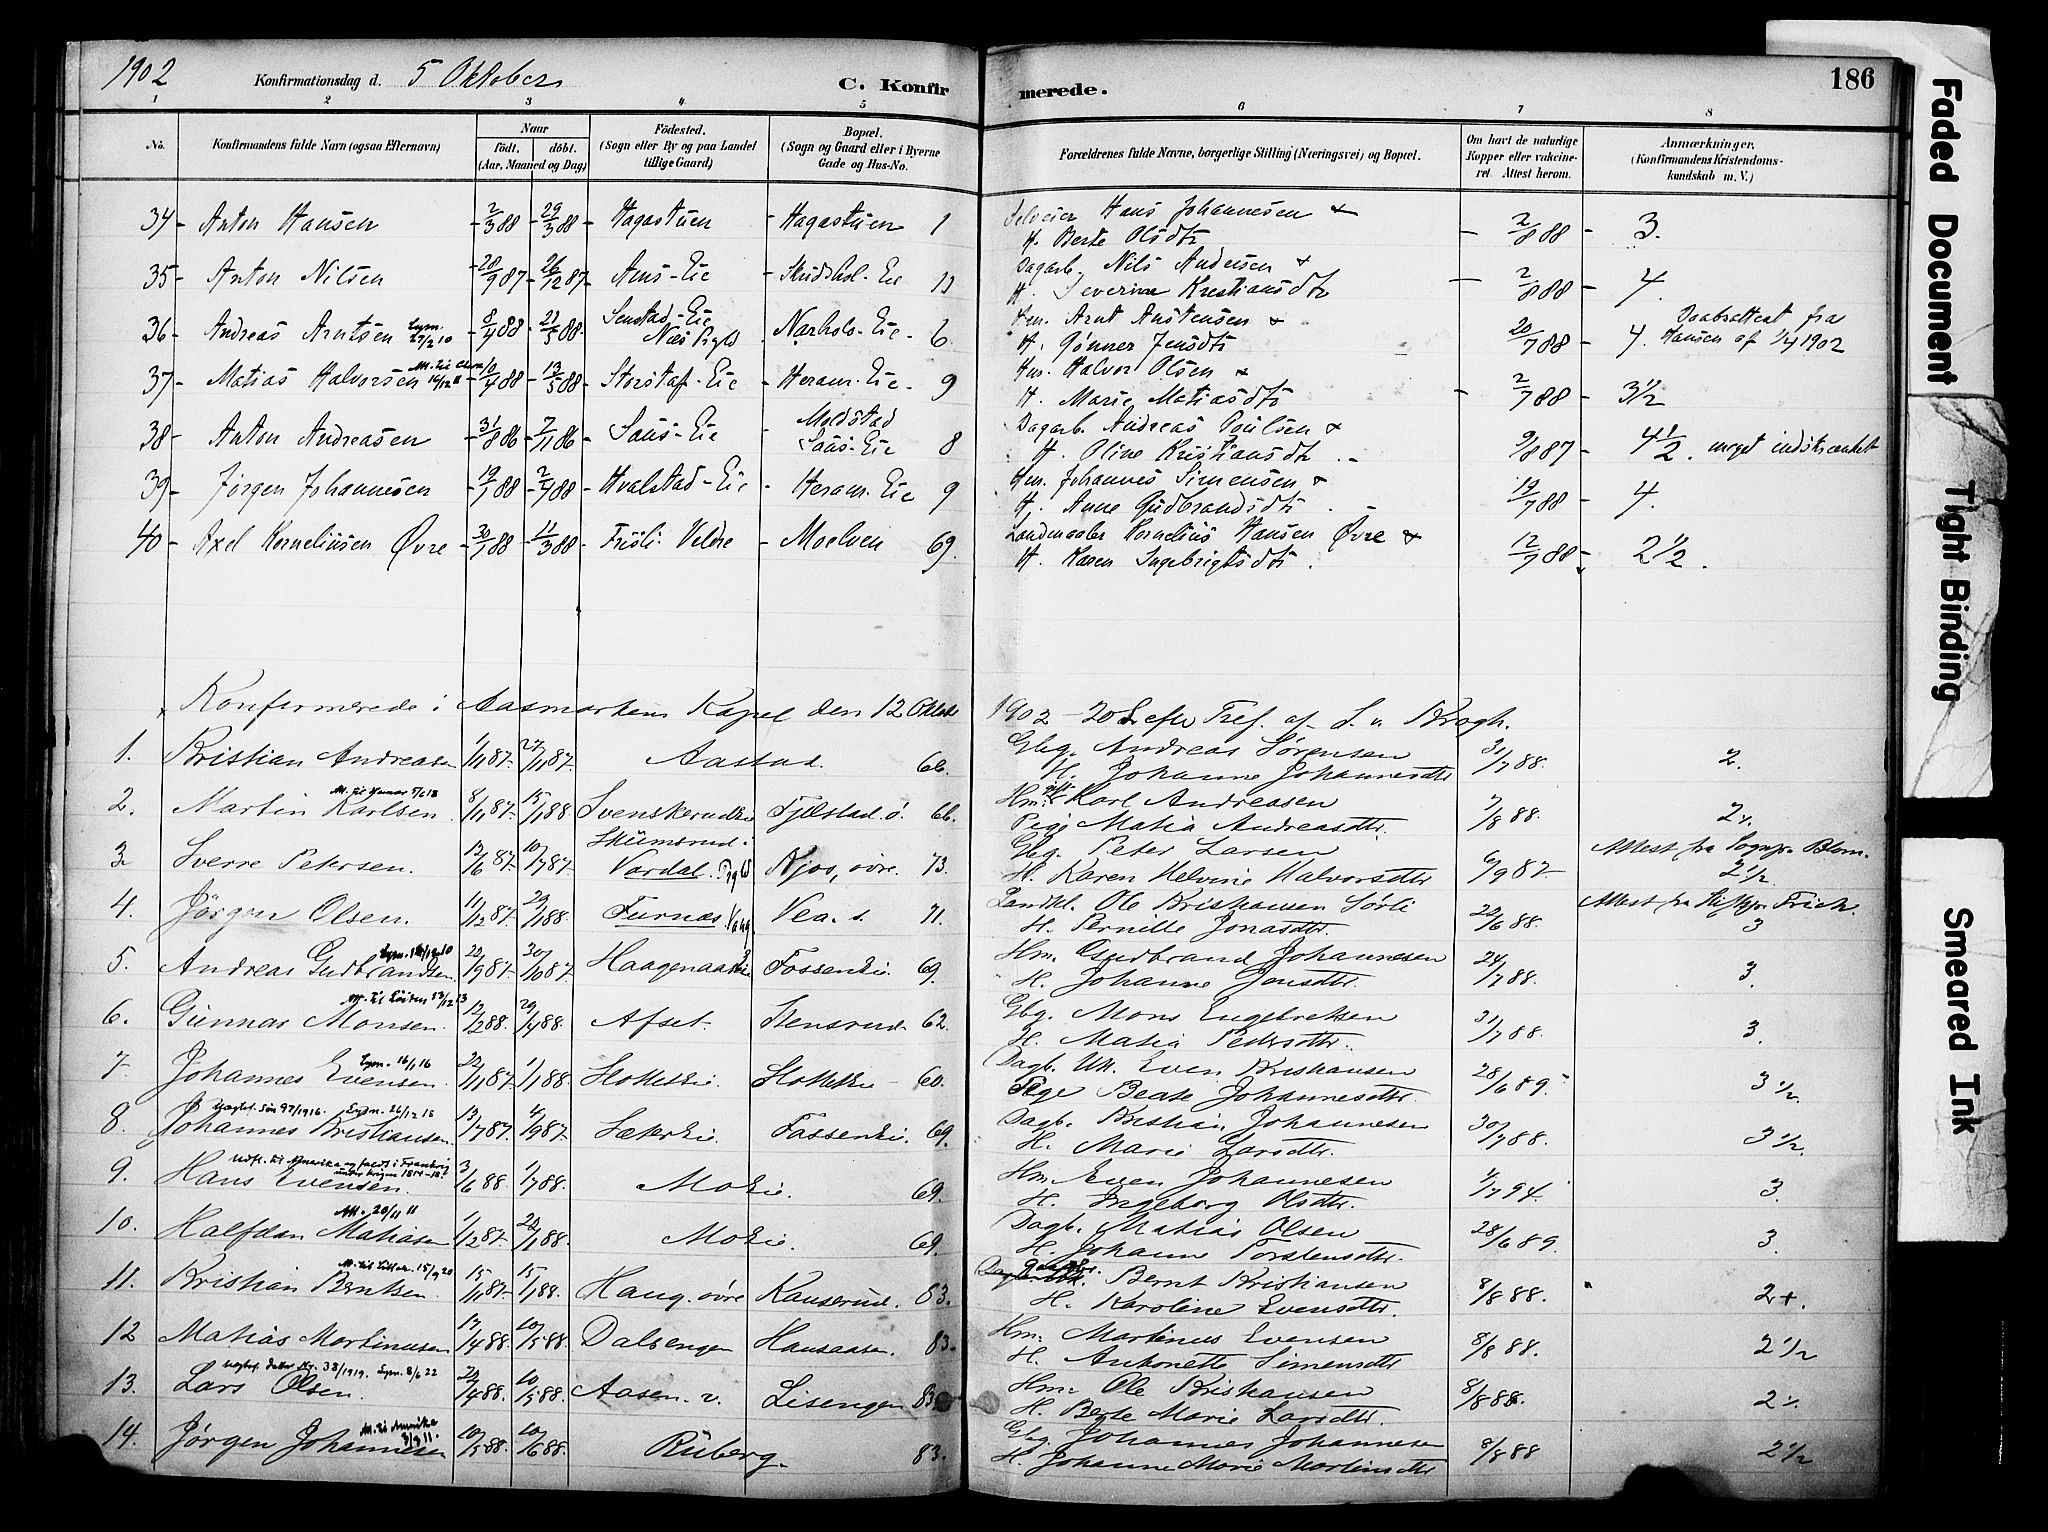 1902 Konfirmationsdag d. 5 Oktober C. Konfir merede. 186
1 2 3 4 5 6 7 8
No. Konfirmandens fulde Navn (ogsaa Efternavn) Naar Födt. döbt. (Aar, Maaned og Dag) Födested. (Sogn eller By og paa Landet tillige Gaard) Bopæl. (Sogn og Gaard eller i Byerne Gade og Hus-No. Forældrenes fulde Navne, borgerlige Stilling (Næringsvei) og Bopæl. Om havt de naturlige Kopper eller vakcineret. Attest herom. Anmærkninger. (Konfirmandens Kristendomskundskab m. V.)
34 - Anton Hansen - 2/3 88 - 29/3 88 - Hagastuen - Hagastuen 1 Selveier Hans Johannesen &
H. Berte Olsdtr - 2/8 88 - 3.
35 - Anton Nilsen - 20/9 87 - 26/12 87 - Ams-Eie - Skudshol-Eie 13 Dagarb. Nils Andersen &
H. Severine Kristiansdtr - 2/8 88 - 4.
36 - Andreas Arntsen - 8/4 88 - 22/5 88 - Senstad-Eie Næs Prgld - Narholo-Eie 6 Hm. Arnt Austensen &
H. Gønner Jensdtr 20/7 88 - 4. Daabsattest fra Hansen af 1/4 1902
37 - Matias Halvorsen 10/4 88 - 13/5 88 - Storstaf-Eie - Heram-Eie - 9 Hm. Halvor Olsen &
H. Marie Matiasdtr - 2/7 88 - 3 1/2
38 - Anton Andreasen - 31/8 86 - 7/11 86 - Saus-Eie - Moldstad Saus-Eie 8 Dagarb. Andreas Poulsen &
H. Oline Kristiansdtr - 9/8 87 - 4 1/2. meget indskrænket
39 - Jørgen Johannesen - 19/1 88 - 2/4 88 - Hvalstad-Eie - Heram-Eie 9 Hm. Johannes Simensen &
H. Anne Gudbrandsdtr - 19/7 88 - 4.
40 - Axel Korneliusen Øvre - 30/1 88 - 11/3 88 - Frisli Veldre - Moelven 69. Landmaaler Kornelius Hansen Øvre &
H. Karen Ingebrigtsdtr. 12/7 88 - 2 1/2.
Konfirmerede i Aasmarken Kapel den 12 Oktober 1902 - 20 S. efter Tref. af S. v. Krogh.
1. Kristian Andreasen 1/11 87. 27/11 87. Aastad. 66. Gbg. Andreas Sørensen
H. Johanne Johannesdtr 31/7 88. 2.
2. Martin Karlsen 8/11 87. 15/1 88. Svenskerudeie Fjelstad ø. 66. Hm. gift Karl Andreasen
Pige Matia Andreasdtr. 7/8 88. 2+
3. Sverre Petersen. 13/6 87. 10/7 87. Skumsrud i Vardal Prgld Njos, øvre. 73. Gbg. Peter Larsen
H. Karen Helvine Halvorsdtr 6/9 87. Attest fra Sognpr. Blom. 2 1/2.
4. Jørgen Olsen. 11/12 87. 29/1 88. Furnæs Vang Vea. s. 71. Landhl. Ole Kristiansen Sørli
H. Pernille Jonasdtr. 20/6 88. Attest fra Stiftspr. Frich. 3
5. Andreas Gudbrandsen 22/9 87. 30/10 87. Haagenaaseie Fosseneie. 69. Hm. Gudbrand Johannesen
H. Johanne Jonsdtr. 24/7 88. 3.
6. M. til Løiten 23/12 13 Gunnar Monsen. 12/2 88. 29/4 88. Afset. Stensrud. 62. Gbg. Mons Engebretsen
H. Matia Pedersdtr. 31/7 88. 3.
7. Lysn. 16/1 16 Johannes Evensen. 22/11 87. 1/1 88. Slotteteie. Slotteteie 60. Dagb. Uk. Even Kristiansen
Pige Beate Johannesdtr. 28/6 89. 3 1/2.
8. Uægtef. Søn 97/1916. Lysn. 26/12 18 Johannes Kristiansen 13/7 87. 4/9 87. Sætereie. Fosseneie. 69. Dagb. Kristian Johannesen
H. Marie Larsdtr. 30/7 88. 3 1/2.
9. Udfl. til Amerika og faldt i Frankrig under krigen 1914-18. Hans Evensen. 3/6 88. 1/7 88. Moeie. 69. Hm. Even Johannesen
H. Ingeborg Olsdtr. 1/7 94. 3.
10. M. 20/11 11 Halfdan Matiasen 1/12 87. 22/1 88. Moeie. 69. Dagb. Matias Olsen
H. Johanne Torstensdtr. 28/6 89. 3.
11. Kristian Berntsen. 15/11 87. 15/1 88. Haug. øvre Kanserud. 83. Bernt Kristiansen
H. Karoline Evensdtr. 8/8 88. 2+.
12 Matias Martinusen 17/4 88. 10/5 88. Dalsengen Hansaasen. 83. Hm. Martinus Evensen
H. Antonette Simensdtr 8/8 88. 2 1/2
13. Uægtef. Datter No. 38/1919. Lysn. 8/6 22 Lars Olsen. 20/4 88. 10/5 88. Aasen. v. Lisengen 83. Hm. Ole Kristiansen
H. Berte Marie Larsdtr. 8/8 88. 2
14. M. til Amerika Jørgen Johannesen 10/5 88. 10/6 88. Ruberg. 83. Gbg. Johannes Johannesen
H. Johanne Marie Martinsdtr 8/8 88 2 1/2
Faded Document
Tight Binding
Smeared Ink